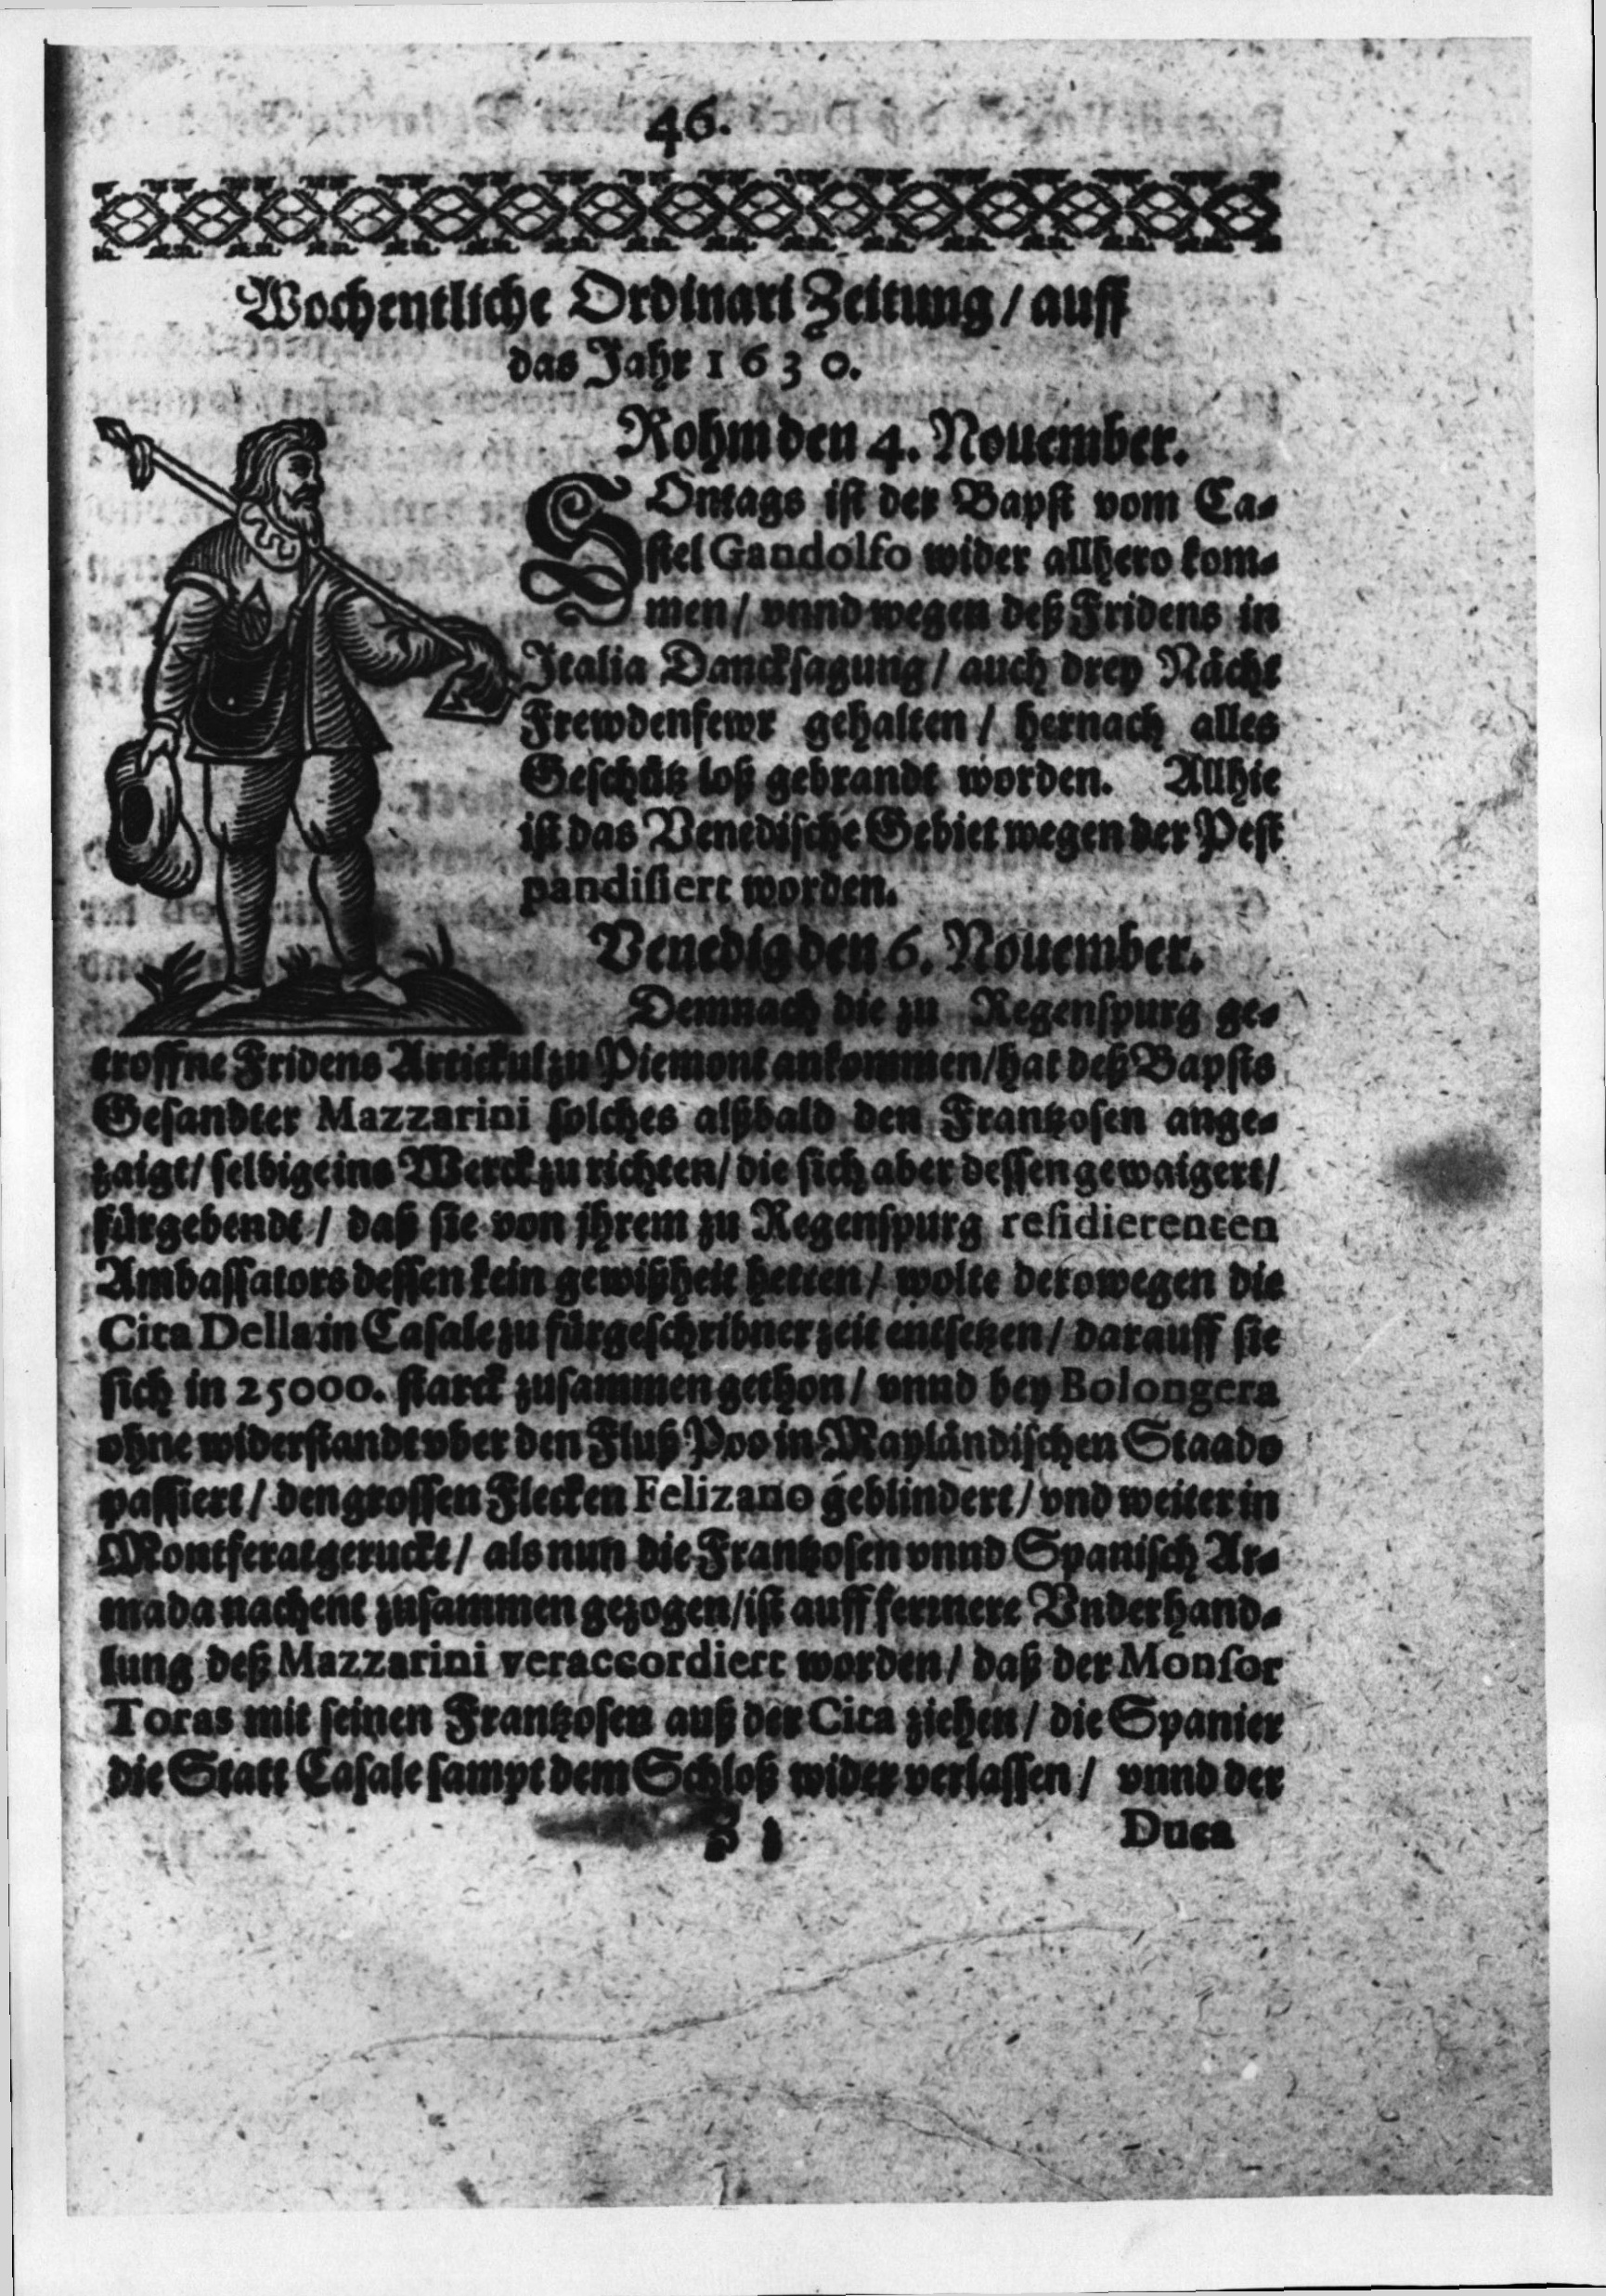 46.
Wochentliche Ordinari Zeitung / auff
das Jahr 1630.
Rohm den 4. Nouember.
SOntags ist der Bapst vom Ca-
stel Gandolfo wider allhero kom-
men / vnnd wegen deß Fridens in
Italia Dancksagung / auch drey Nächt
Frewdenfewr gehalten / hernach alles
Geschütz loß gebrandt worden. Allhie
ist das Venedische Gebiet wegen der Pest
pandisiert worden.
Venedig den 6. Nouember.
Demnach die zu Regenspurg ge-
troffne Fridens Artickul zu Piemont ankommen / hat deß Bapsts
Gesandter Mazzarini solches alßbald den Frantzosen ange-
zaigt / selbige ins Werck zu richten / die sich aber dessen gewaigert /
fürgebendt / daß sie von jhrem zu Regenspurg residierenten
Ambassators dessen kein gewißheit hetten / wolte derowegen die
Cita Della in Casale zu fürgeschribner zeit entsetzen / darauff sie
sich in 25000. starck zusammen gethon / vnnd bey Bolongera
ohne widerstandt vber den Fluß Poo in Mayländischen Staado
passiert / den grossen Flecken Felizano geblindert / vnd weiter in
Montferat geruckt / als nun die Frantzosen vnnd Spanisch Ar-
mada nachent zusammen gezogen / ist auff fermere Vnderhand-
lung deß Mazzarini veraccordiert worden / daß der Monsor
Toras mit seinen Frantzosen auß der Cita ziehen / die Spanier
die Statt Casale sampt dem Schloß wider verlassen / vnnd der
Duca